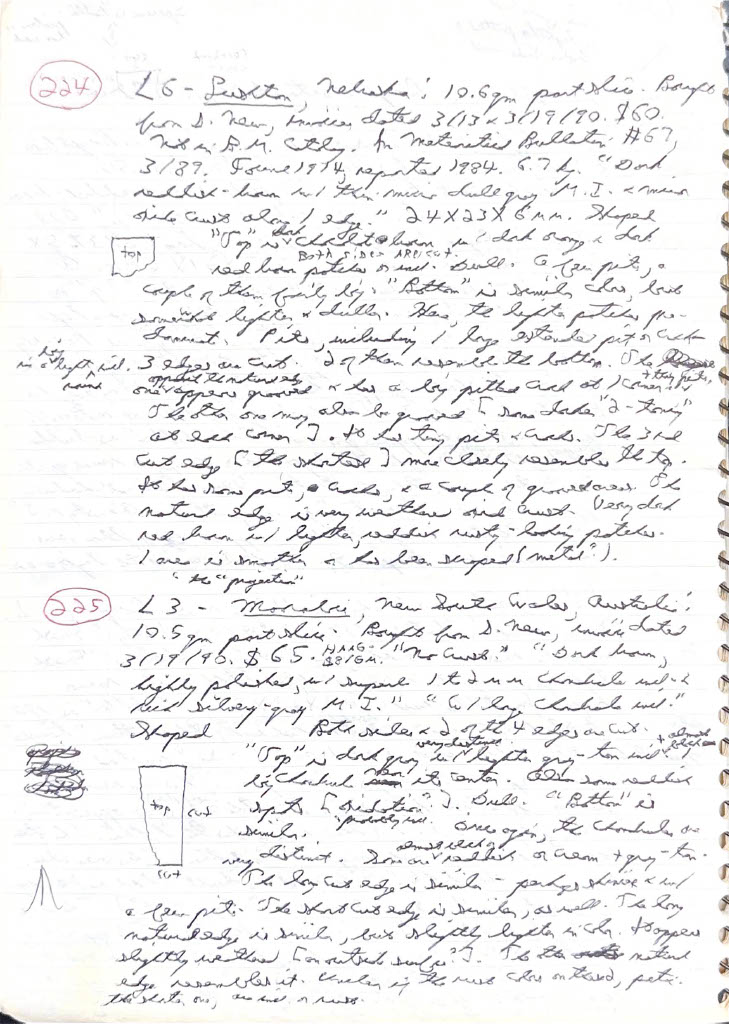 224
L6 - Lushton, Nebraska: 10.6gm part slice. Bought
from D. New, invoices dated 3/13 & 3/19/90. $60.
Not in B. M. Catalog. In Meteoritics Bulletin #67,
3/89. Found 1974, reported 1984. 6.7 kg. "Dark
reddish-brown w/ thin micro dull gray M.I. & minor
oxide crust along 1 edge." 24X23X6mm. Shaped
top
"Top" is dark chocolate brown, w/ dark orang & dark
Both sides ARE cut.
red brown patches & incl. Dull. A few pits, a
couple of them fairly big. "Bottom" is similar color, but
somewhat lighter & duller. Here, the lighter patches pre-
dominant. Pits, including 1 large extended pit or crack
3 edges are cut. 2 of them resemble the bottom. The
opposite the natural edge
one appears grooved & has a big pitted crack at 1 corner
+ tiny pits,
The other one may also be grooved [some darker "2-toning"
at each corner]. It has tiny pits & cracks. The 3rd
cut edge [the shortest] more closely resembles the top.
It has some pits, cracks, & a couple of grooved areas. The
natural edge is very weathered and crust. Very dark
red brown w/ lighter, reddish rusty-looking patches.
1 area is smoother & has been scraped (metal?).
"the "projection"
225
L3 - , New South Wales, Australia:
10.5gm part slice. Bought from D. New, invoice dated
3/19/90. $65. "No crust." "Dark brown,
highly polished, w/ superb 1 to 2 mm chondrule incl. &
rich silvery-gray M.I." "w/ large chondrule incl."
Shaped Both sides & 2 of the 4 edges are cut.
+ almost black
very distinct
"Top" is dark gray w/ lighter gray-tan incl.
big chondrule near its center. Also some reddish
top cut
spots [oxidation?]. Dull. "Bottom" is
similar. Once again, the chondrules are
probably incl.
very distinct. Some are reddish or cream + gray-tan.
cut
The long cut edge is similar - perhaps shinier & w/
a few pits. The short cut edge is similar, as well. The long
natural edge is similar, but slightly lighter in color. It appears
slightly weathered [an outside surface?]. The other natural
edge resembles it.